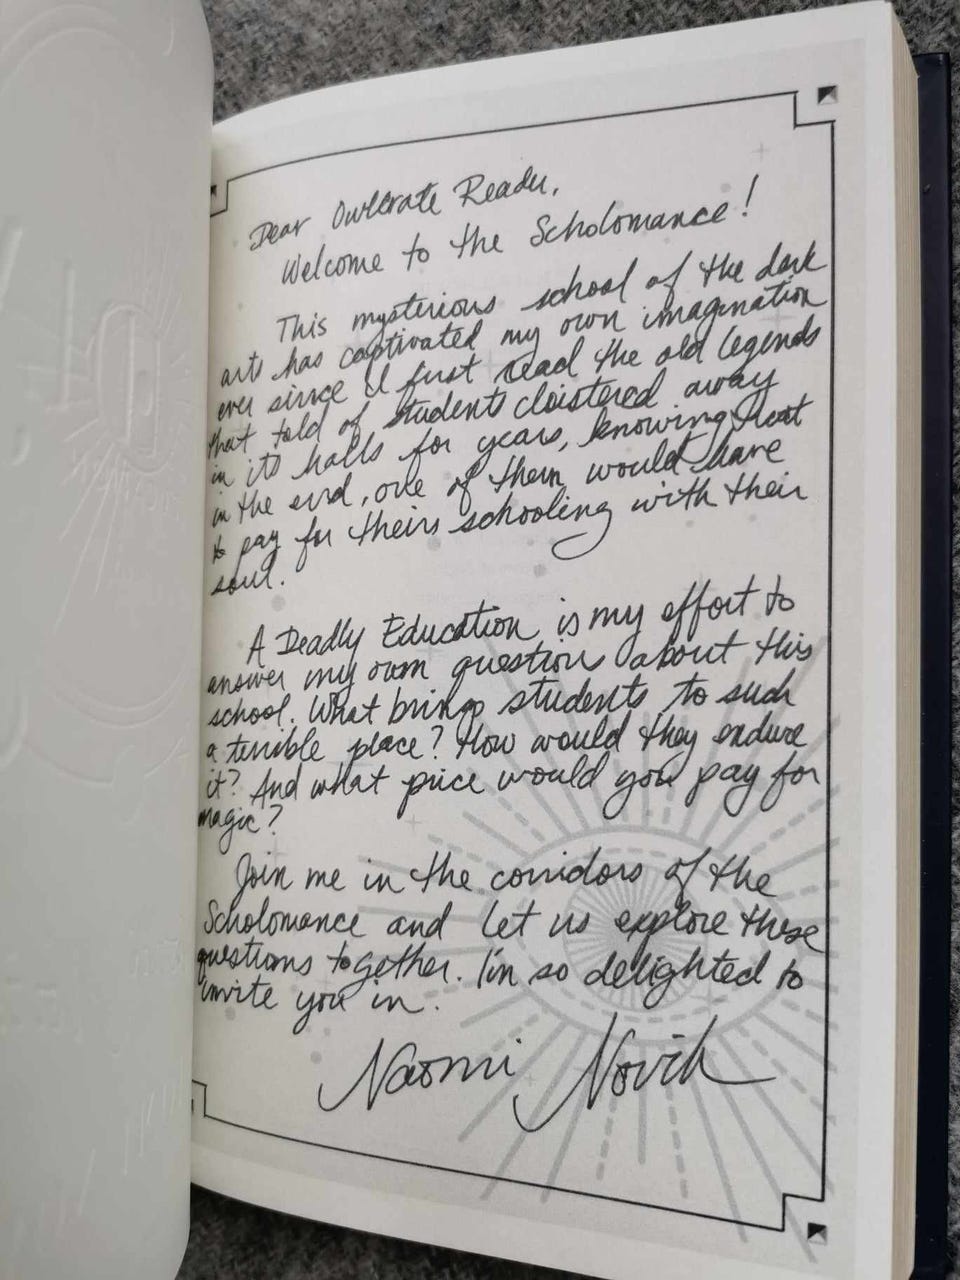 Dear Owlcrate Reader,
Welcome to the Scholomance!
This mysterious school of the dark
arts has captivated my own imagination
ever since I first read the old legends
that told of students cloistered away
in its halls for years, knowing that
in the end, one of them would have
to pay for their schooling with their
soul.
A Deadly Education is my effort to
answer my own questions about this
school. What brings students to such
a terrible place? How would they endure
it? And what price would you pay for
magic?
Join me in the corridors of the
Scholomance and let us explore these
questions together. I'm so delighted to
invite you in.
Naomi Novik